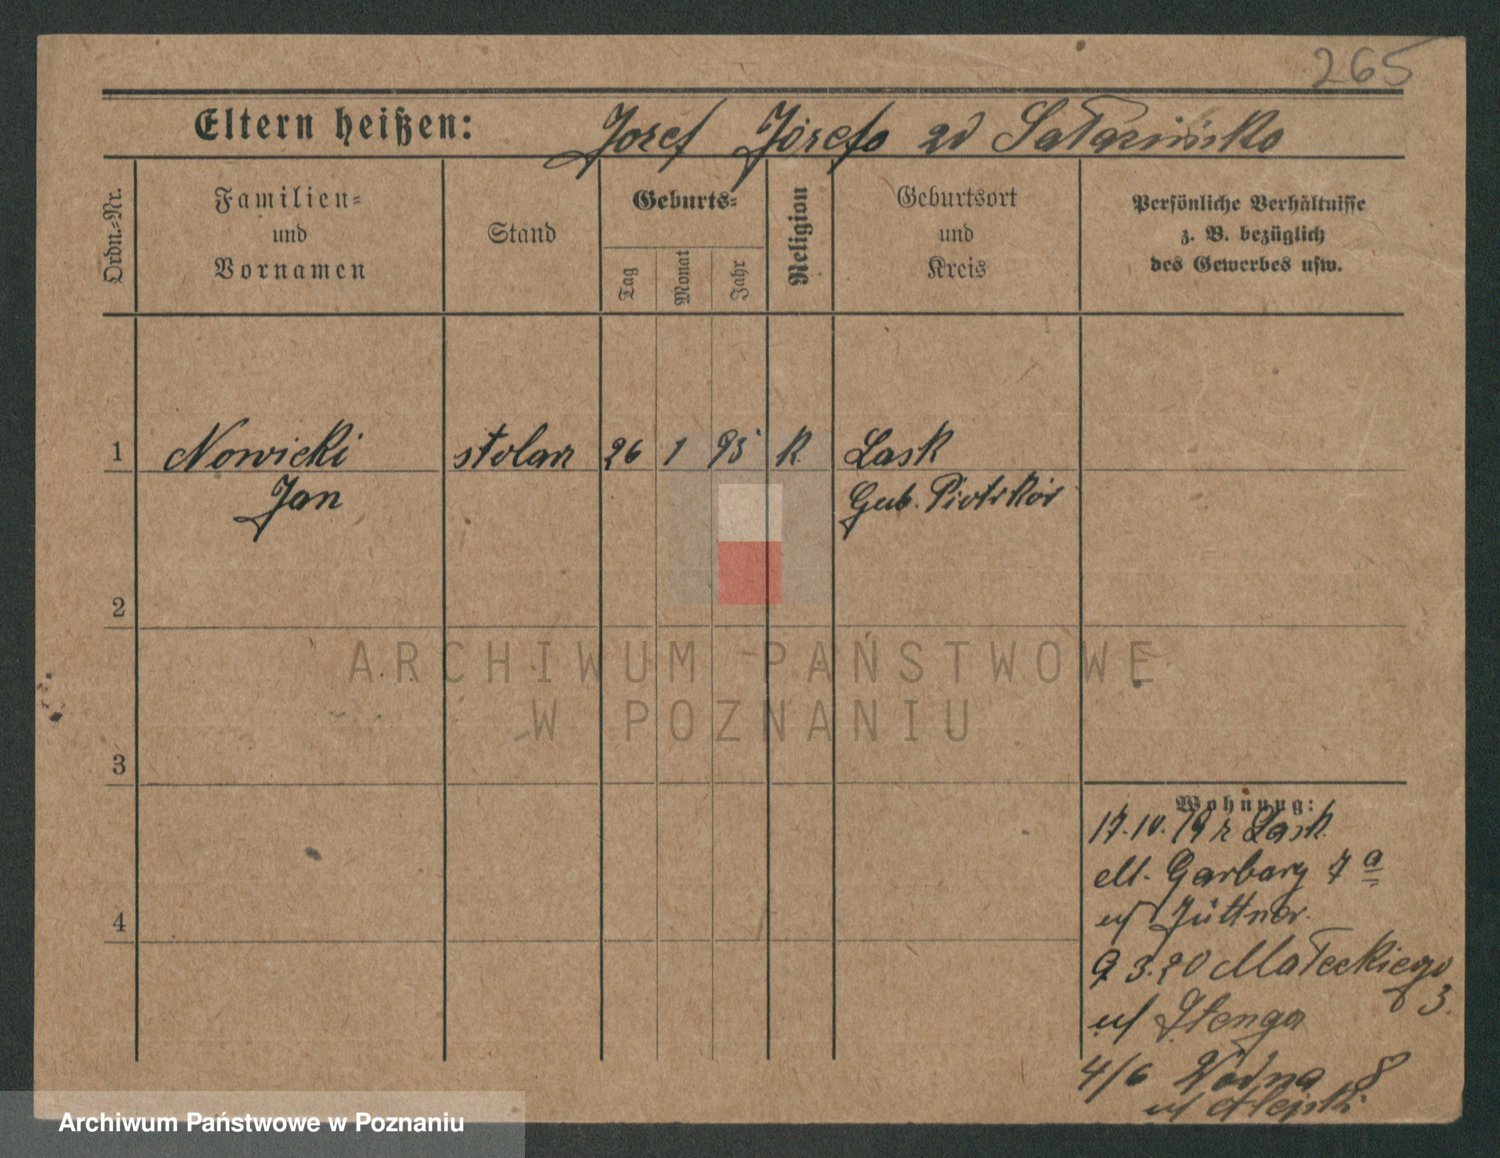 265
Eltern heißen: Jozef Józefa zd Sałacińska
Ordn.-Nr.
Familien-
und
Vornamen
Stand
Geburts-
Tag
Monat
Jahr
Religion
Geburtsort
und
Kreis
Persönliche Verhältnisse
z. B. bezüglich
des Gewerbes usw.
1 Nowicki stolarz 26 1 95 K. Lask
Jan Gub. Piotrków
2
ARCHIWUM PAŃSTWOWE
W POZNANIU
3
Wohnung:
17.10.19 z Lask
Garbary 7 a
u/ Jüttner.
9 3.20 Małeckiego
3.
u/
4/6 Wodna 8
u/
4
Archiwum Państwowe w Poznaniu